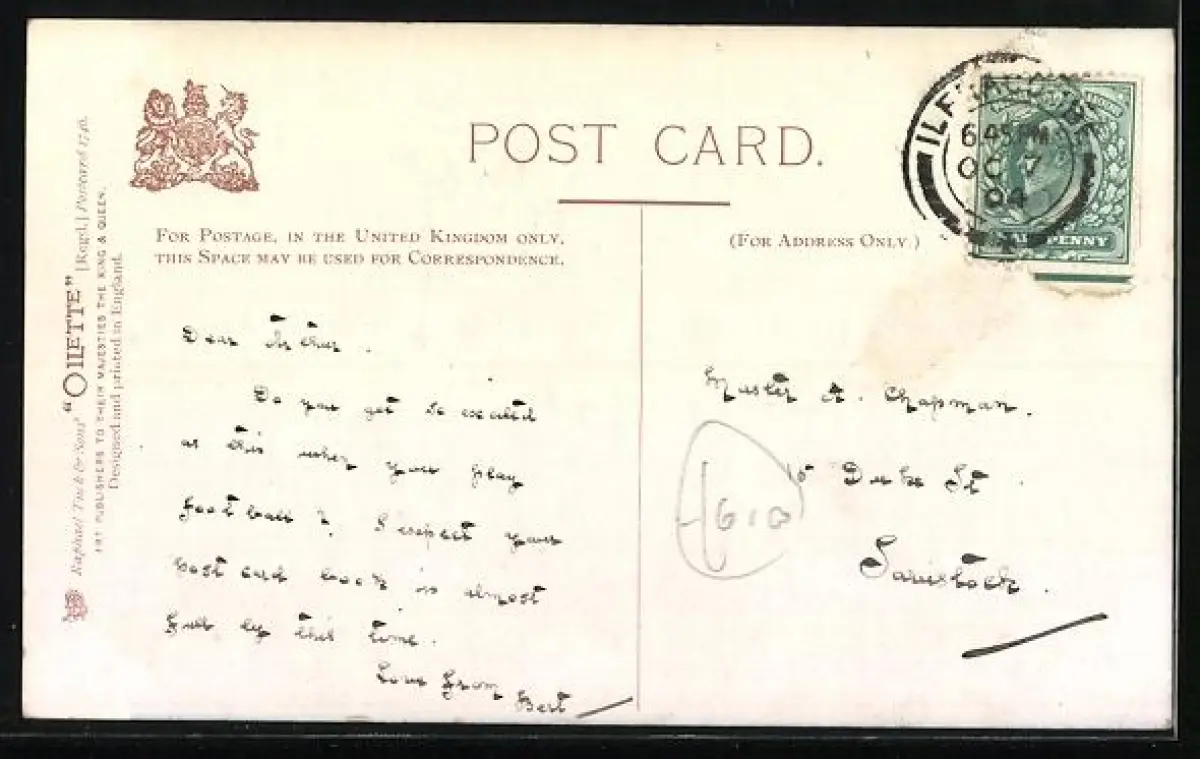 POST CARD.
FOR POSTAGE, IN THE UNITED KINGDOM ONLY,
THIS SPACE MAY BE USED FOR CORRESPONDENCE.
(FOR ADDRESS ONLY.)
Raphael Tuck & Sons' "OILETTE" [Regd.] Postcard 1740.
ART PUBLISHERS TO THEIR MAJESTIES THE KING & QUEEN.
Designed and printed in England.
ILFRACOMBE
6.45 PM
OC 7
04
HALFPENNY
Dear Arthur.
Do you get so excited
as this when you play
football? I expect your
post card book is almost
full by this time.
Love from
Bert
Master A. Chapman.
15 Duke St
Tavistock.